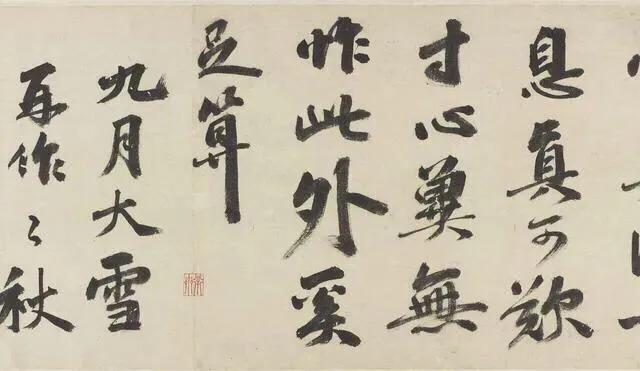 息真可歎
寸心冀無
怍此外奚
足算
九月大雪
再作〻秋